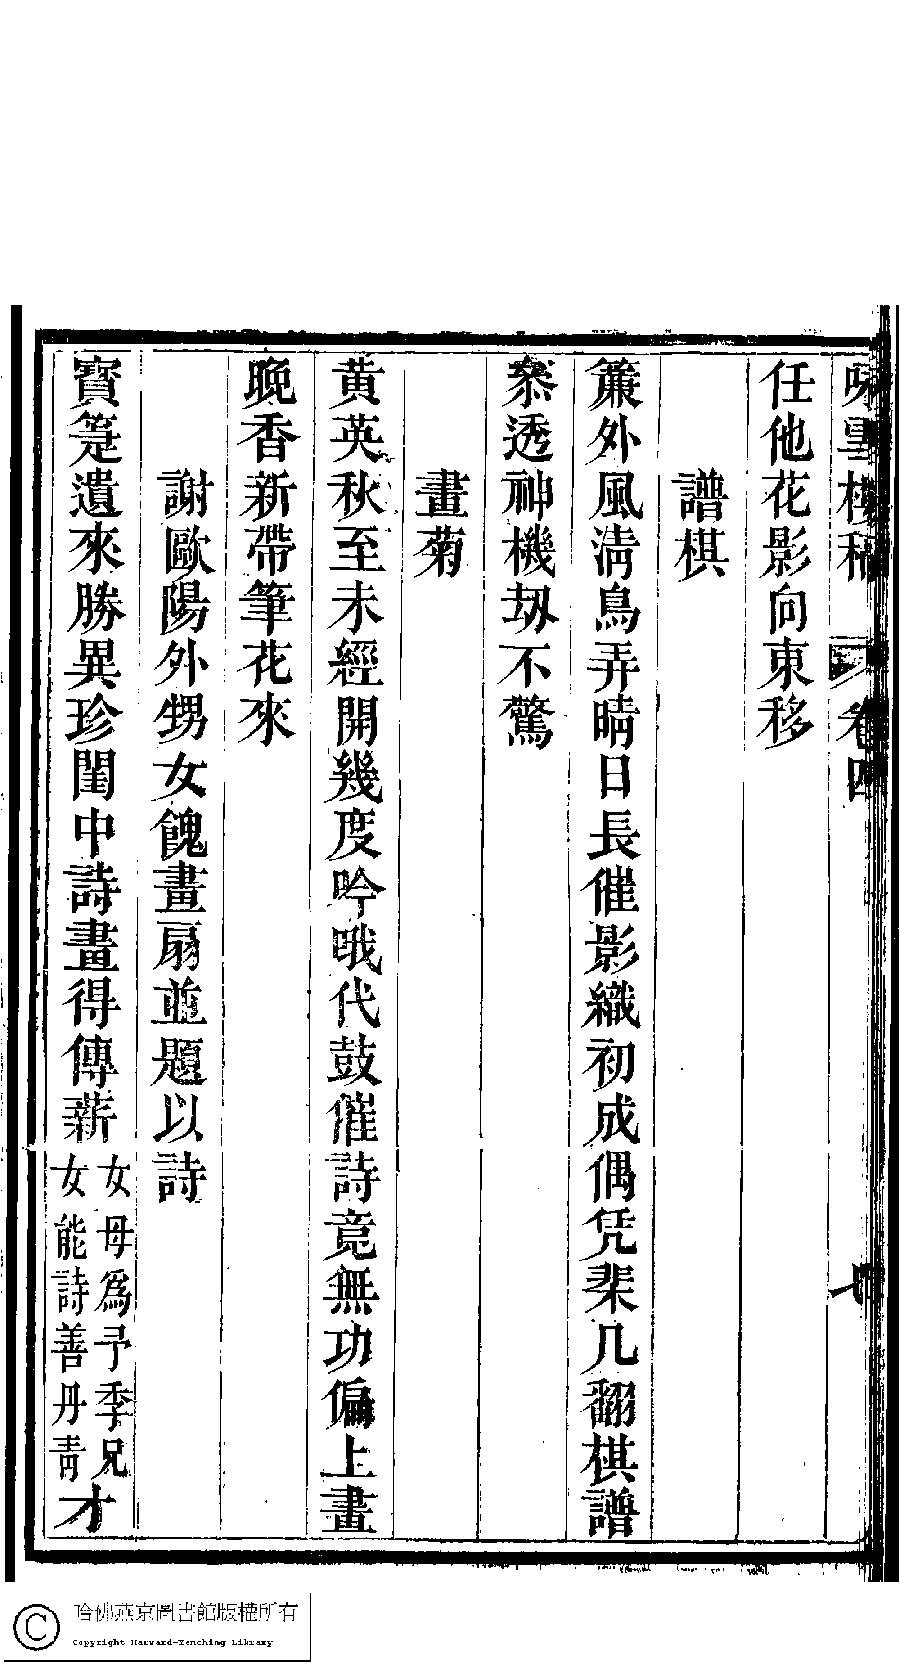 咏雪樓稿 卷四 七
任他花影向東移
譜棋
簾外風淸鳥弄晴日長催影織初成偶凭棐几翻棋譜
叅透神機刼不驚
畫菊
黃英秋至未經開幾度吟哦代鼓催詩竟無功偏上畫
晚香新帶筆花來
謝歐陽外甥女餽畫扇並題以詩
寳箑遺來勝異珍閨中詩畫得傳薪女母爲予季兄女能詩善丹靑才
哈佛燕京圖書館版權所有
Copyright Harvard-Yenching Library